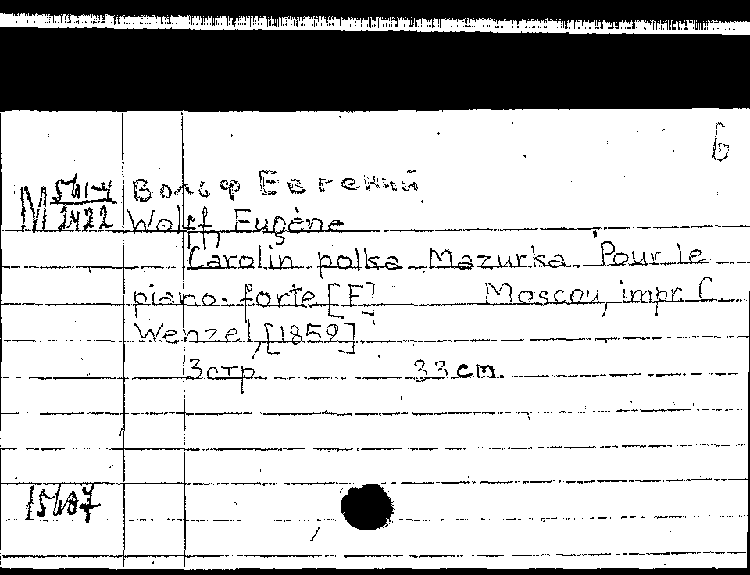 6
М 561-4 Вольф Евгений
2422 Wolff Eugène
Carolin polka Mazurka. Pour le
piano-forte [F] Moscou, impr. C.
Wenzel, [1859].
3 стр. 33 cm.
15687